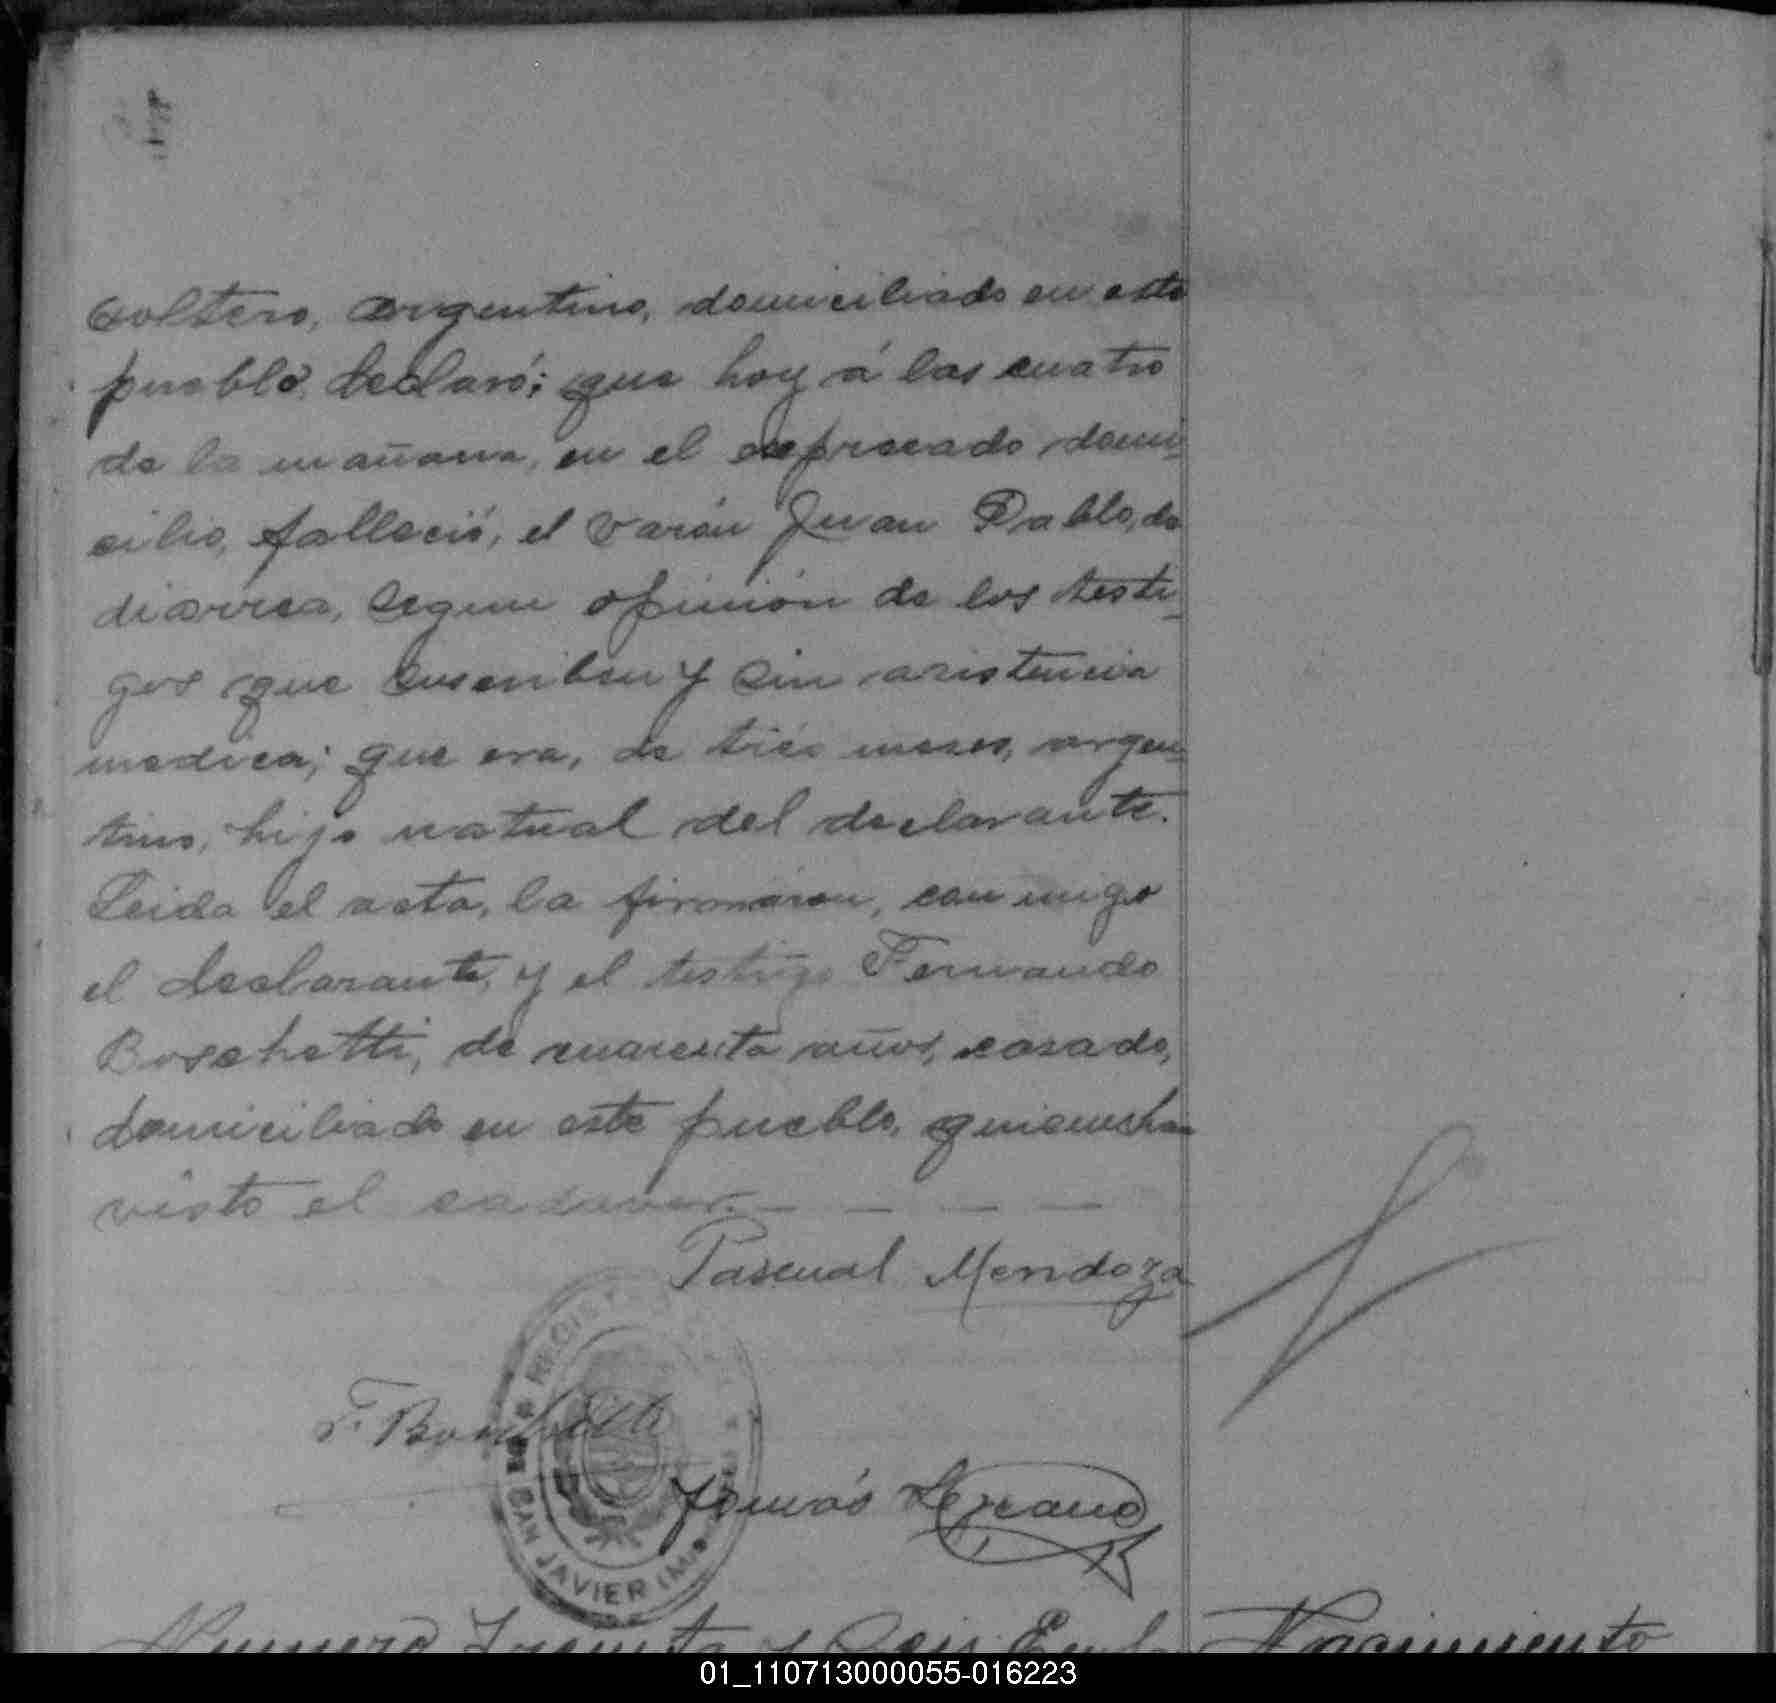 soltero, argentino, domiciliado en este
pueblo, declaró; que hoy á las cuatro
de la mañana, en el expresado domi-
cilio, falleció, el varón Juan Pablo, de
diarrea, segun opinión de los testi-
gos que suscriben y sin asistencia
medica; que era, de tres meses, argen-
tino, hijo natual del declarante.
Leida el acta, la firmaron, conmigo
el declarante, y el testigo Fernando
Boschetti, de cuarenta años, casado,
domiciliado en este pueblo, quienes han
visto el cadaver. — — — —
Pascual Mendoza
F. Boschetti
Tomás Lezcano
SAN JAVIER
Numero Treinta y Seis. En
Nacimiento
01_110713000055-016223